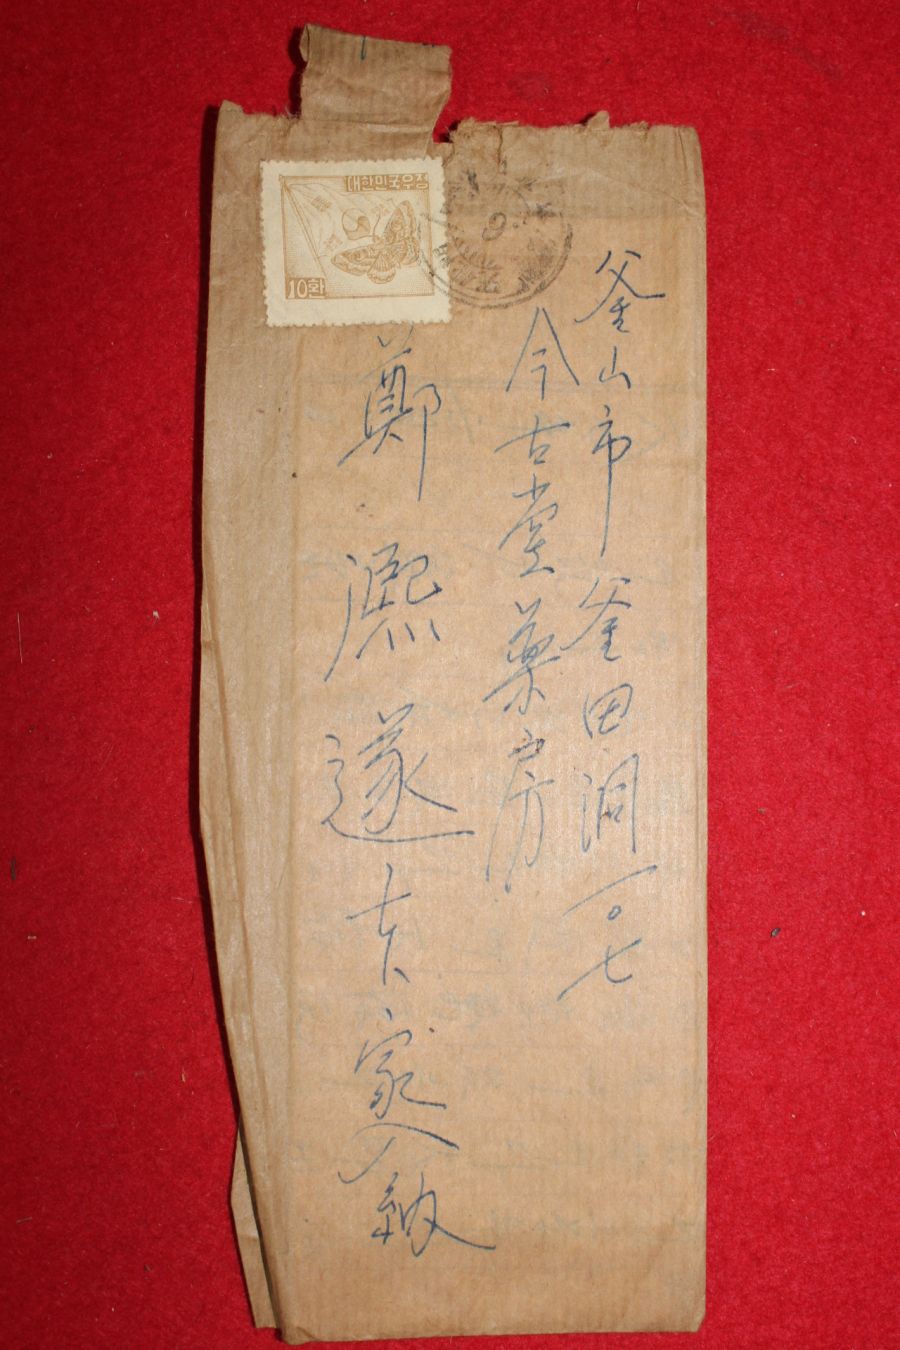 대한민국우정
10환
釜山市 釜田洞 一〇七
今古堂藥房
鄭熙邃 本家入納